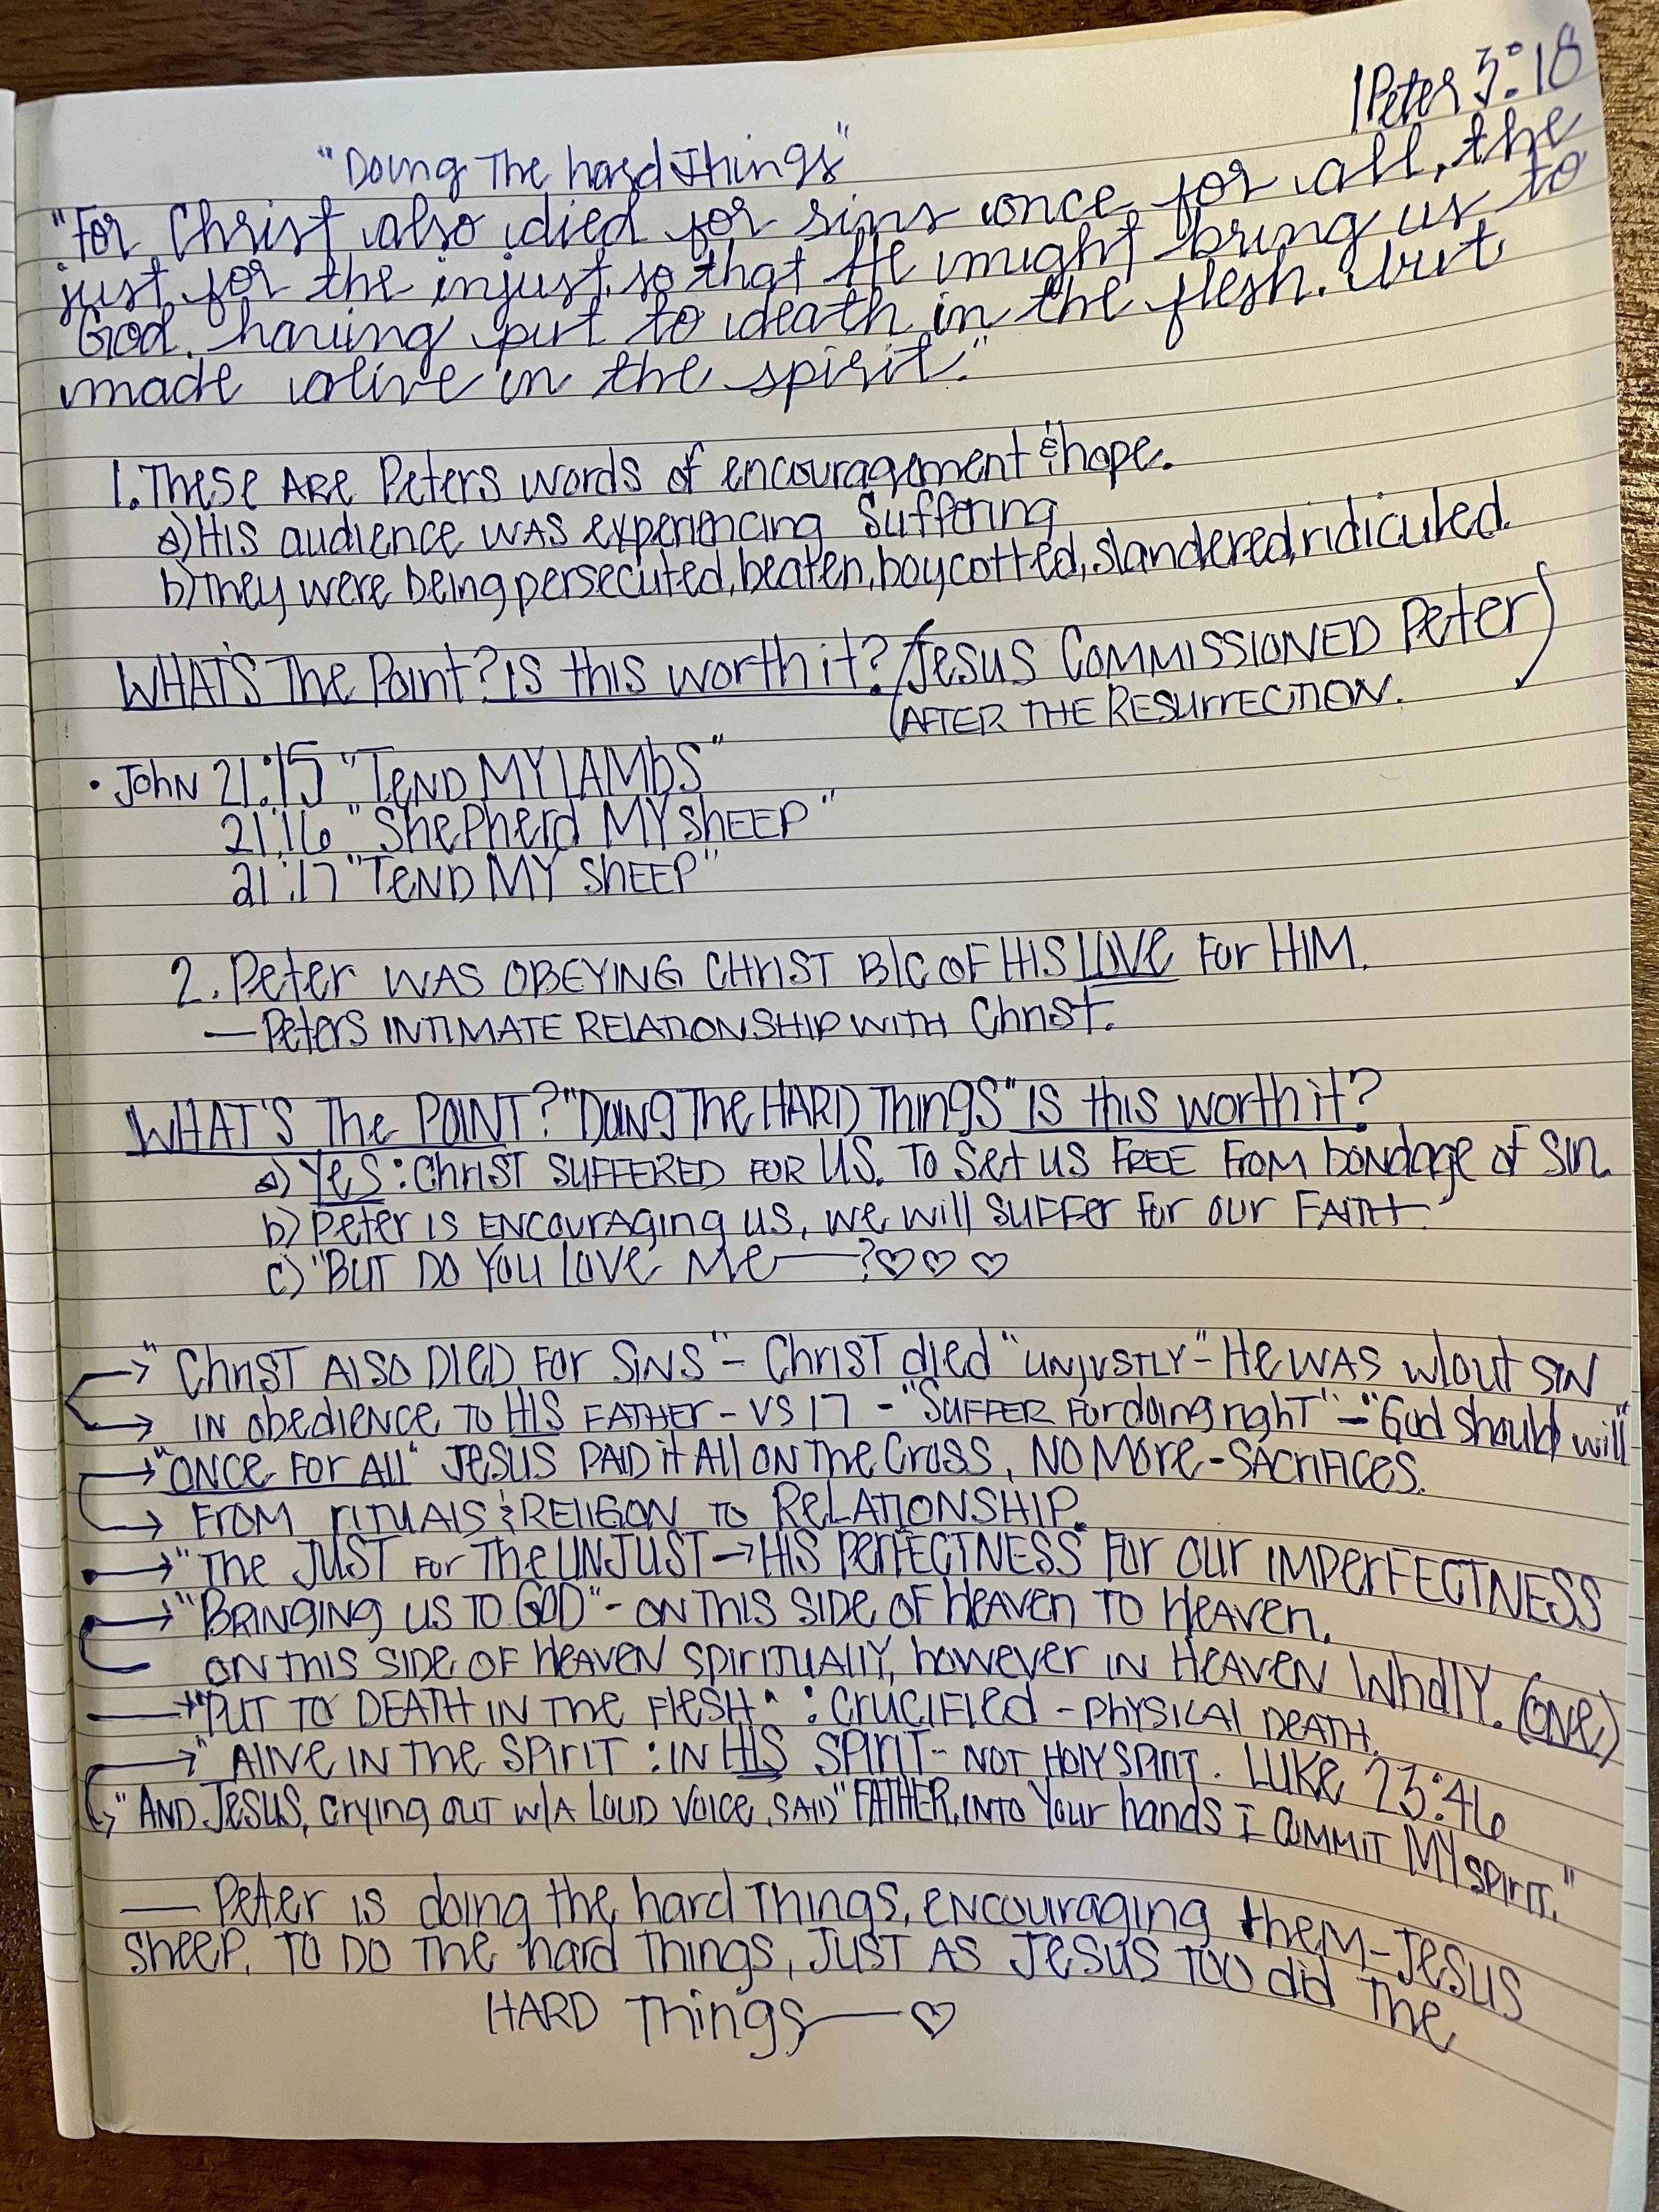 1Peter 3:18
"Doing The hard Things"
"For Christ also died for sins once for all, the
just for the injust, so that He might bring us to
God. having put to death in the flesh. but
made alive in the spirit."
1. These ARE Peters words of encouragement & hope.
a) His audience was experiencing suffering
b) They were being persecuted, beaten, boycotted, slandered, ridiculed.
WHAT'S The Point? Is this worth it? (Jesus COMMISSIONED Peter)
(AFTER THE RESURRECTION.
• John 21:15 "TEND MY LAMbS"
21:16 "ShePherd MY SHEEP"
21:17 "TEND MY SHEEP"
2. Peter WAS OBEYING CHRIST B/C OF HIS LOVE For HIM.
— Peters INTIMATE RELATIONSHIP WITH Christ.
WHAT'S The POINT? "Doing The HARD Things" Is this worth it?
a) Yes: Christ SUFFERED FOR US. To Set us FREE From bondage of Sin.
b) Peter IS ENCOURAGING us, we will SUFFER For our FAITH
c) "BUT DO YOU LOVE Me—? ♡ ♡ ♡
→ "Christ ALSO DIED FOR SINS" - Christ died "UNJUSTLY" - He WAS w/out SIN
→ IN obedience TO HIS FATHER - VS 17 - "SUFFER For doing right" - "God should will"
→ "ONCE FOR All" JESUS PAID it All ON The Cross, NO MORE - SACRIFICES.
→ FROM RITUALS & RELIGON TO RELATIONSHIP.
• → "The JUST FOR The UNJUST → HIS PERFECTNESS" For our IMPERFECTNESS
→ "BRINGING US TO GOD" - ON THIS SIDE OF HEAVEN TO HEAVEN.
ON THIS SIDE OF HEAVEN SPIRITUALLY, however IN HEAVEN WhollY. (ONE)
→ "PUT TO DEATH IN THE FLESH" : CRUCIFIED - PHYSICAL DEATH.
→ " ALIVE IN THE SPIRIT : IN HIS SPIRIT - NOT HOLY SPIRIT. LUKE 23:46
→ "AND JESUS, crying OUT W/A LOUD VOICE, SAID "FATHER, INTO Your hands I COMMIT MY SPIRIT."
— Peter is doing the hard Things, encouraging them - JESUS
SHEEP. TO DO THE hard Things, JUST AS JESUS TOO did The
HARD Things — ♡